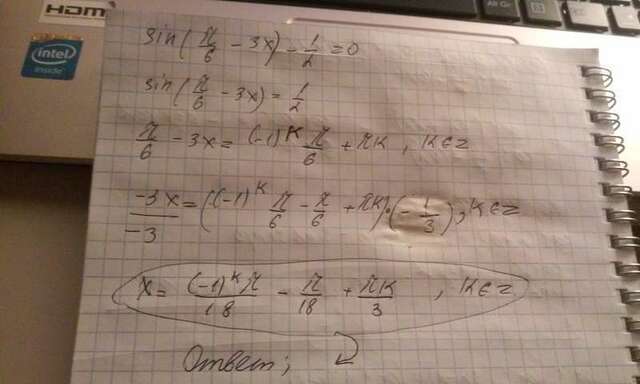 HDMI
Alt Gr
intel
inside
sin(π/6 - 3x) - 1/2 = 0
sin(π/6 - 3x) = 1/2
π/6 - 3x = (-1)^k π/6 + πk, k∈z
-3x/-3 = ((-1)^k π/6 - π/6 + πk)·(-1/3), k∈z
x = (-1)^k π/18 - π/18 + πk/3, k∈z
Ответ;